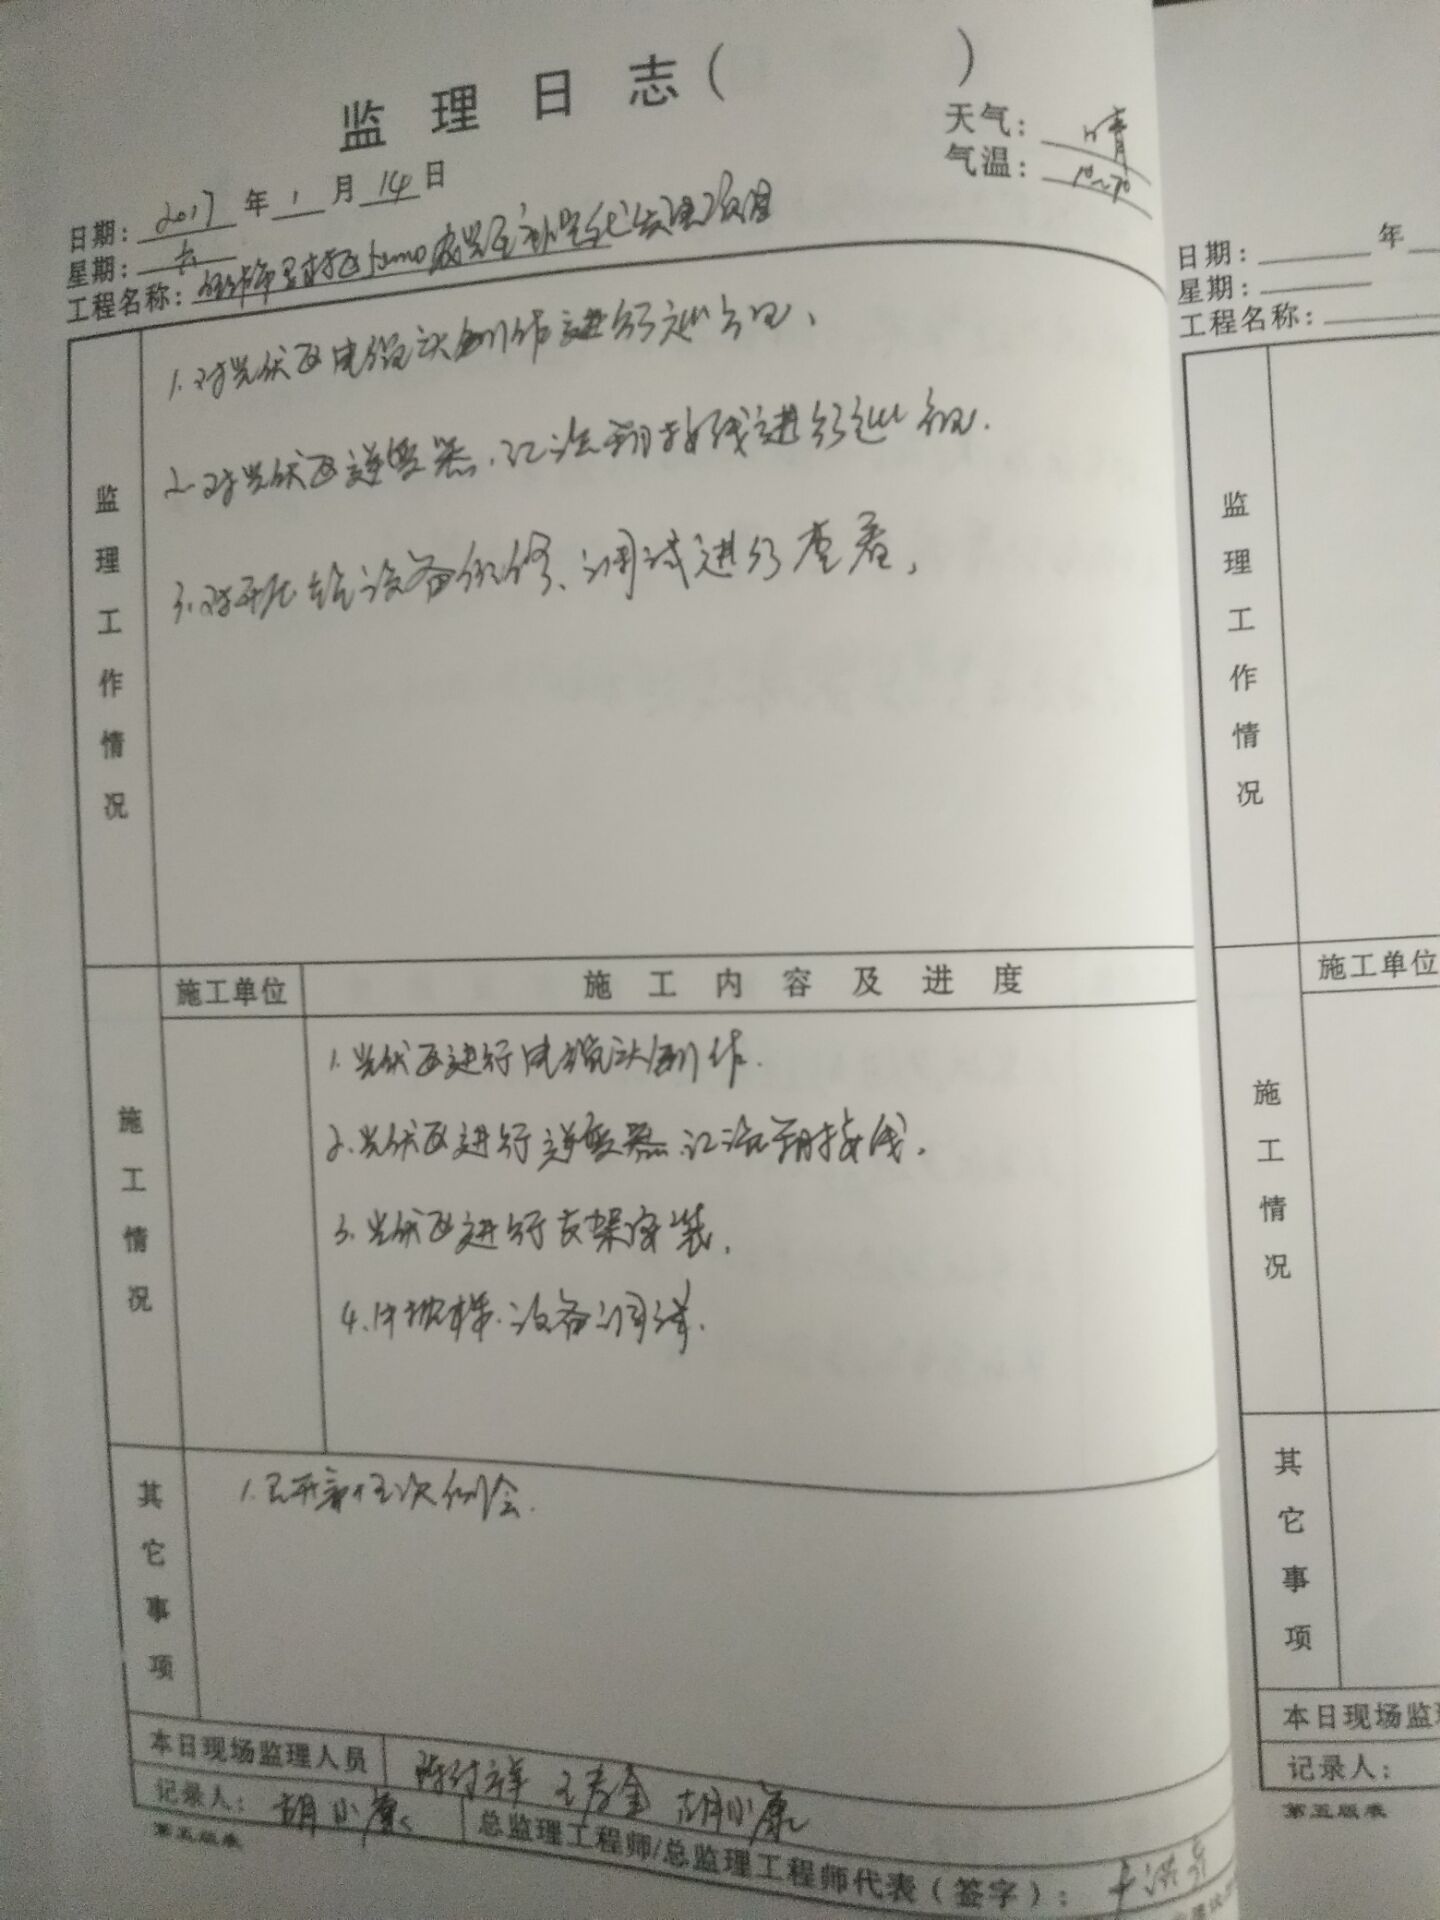 监理日志( )
天气: 晴
气温:
日期: 2017年1月14日
星期: 六
工程名称:
监理工作情况
1.对光伏区电缆头制作进行巡视、
2.对光伏区逆变器、汇流箱接线进行巡视.
3.对开压站设备维修、调试进行查看,
施工单位 施工内容及进度
施工情况
1.光伏区进行电缆头制作.
2.光伏区进行逆变器、汇流箱接线,
3.光伏区进行支架安装,
4. 设备调试.
其它事项
1.召开第十五次例会.
本日现场监理人员 胡小康
记录人: 胡小康 总监理工程师/总监理工程师代表(签字):
第五版表
日期: 年
星期:
工程名称:
监理工作情况
施工单位
施工情况
其它事项
本日现场监
记录人:
第五版表